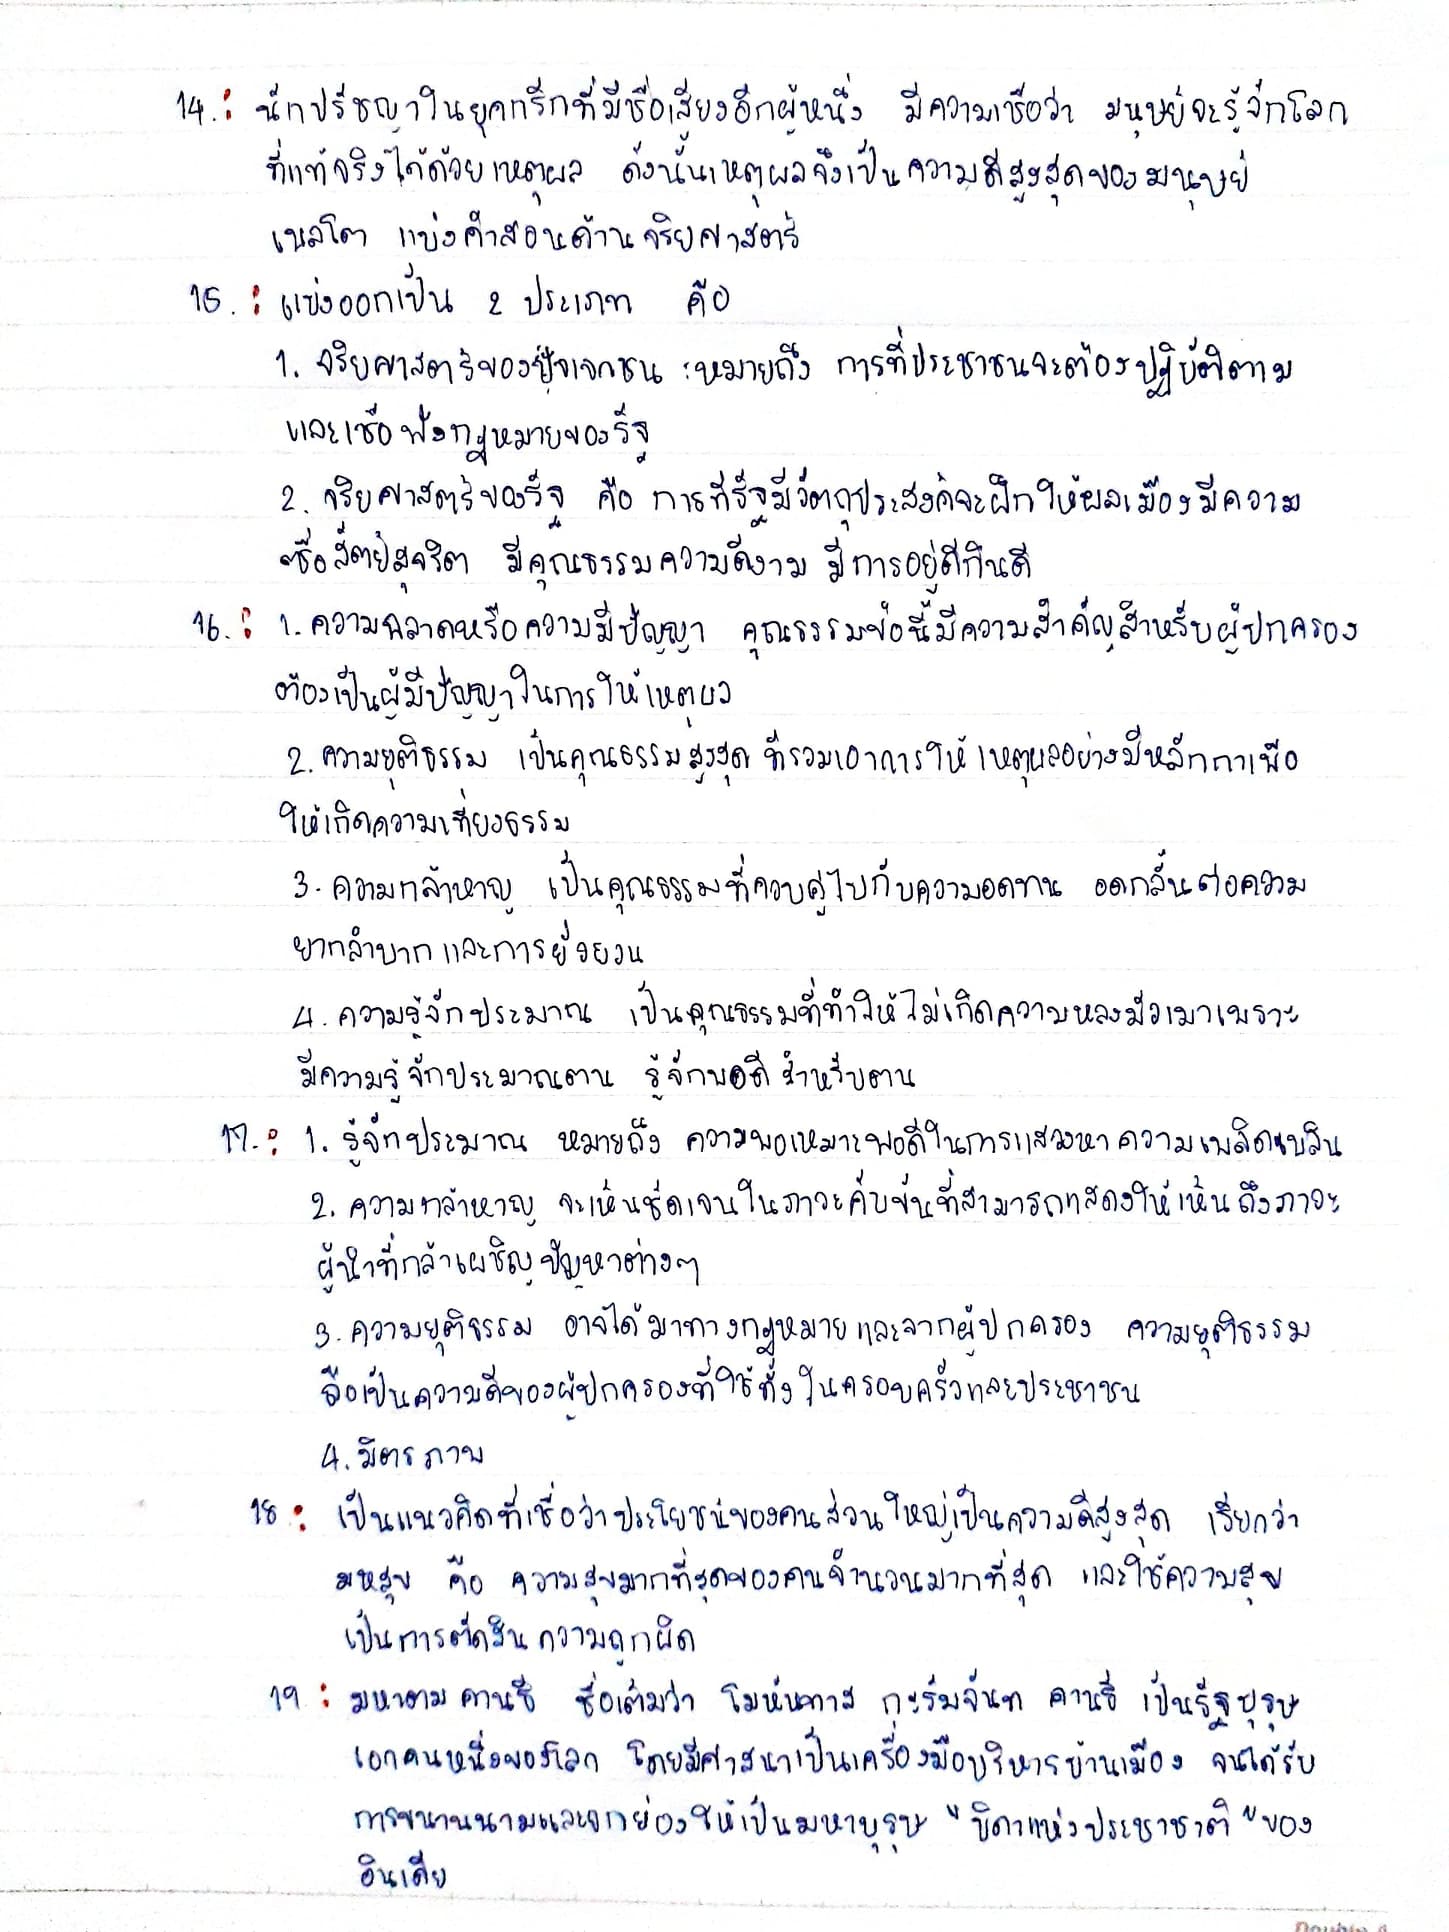 14. : นักปรัชญาในยุคกรีกที่มีชื่อเสียงอีกผู้หนึ่ง มีความเชื่อว่า มนุษย์จะรู้จักโลก
ที่แท้จริงได้ด้วยเหตุผล ดังนั้นเหตุผลจึงเป็นความดีสูงสุดของมนุษย์
เพลโต แบ่งคำสอนด้านจริยศาสตร์
15. : แบ่งออกเป็น 2 ประเภท คือ
1. จริยศาสตร์ของปัจเจกชน : หมายถึง การที่ประชาชนจะต้องปฏิบัติตาม
และเชื่อฟังกฎหมายของรัฐ
2. จริยศาสตร์ของรัฐ คือ การที่รัฐมีวัตถุประสงค์จะฝึกให้พลเมืองมีความ
ซื่อสัตย์สุจริต มีคุณธรรมความดีงาม มีการอยู่ดีกินดี
16. : 1. ความฉลาดหรือความมีปัญญา คุณธรรมข้อนี้มีความสำคัญสำหรับผู้ปกครอง
ต้องเป็นผู้มีปัญญาในการให้เหตุผล
2. ความยุติธรรม เป็นคุณธรรมสูงสุด ที่รวมเอาการให้เหตุผลอย่างมีหลักกาเพื่อ
ให้เกิดความเที่ยงธรรม
3. ความกล้าหาญ เป็นคุณธรรมที่ควบคู่ไปกับความอดทน อดกลั้นต่อความ
ยากลำบากและการยั่วยวน
4. ความรู้จักประมาณ เป็นคุณธรรมที่ทำให้ไม่เกิดความหลงมัวเมาเพราะ
มีความรู้จักประมาณตน รู้จักพอดีสำหรับตน
17. : 1. รู้จักประมาณ หมายถึง ความพอเหมาะพอดีในการแสวงหาความเพลิดเพลิน
2. ความกล้าหาญ จะเห็นชัดเจนในภาวะคับขันที่สามารถแสดงให้เห็นถึงภาวะ
ผู้นำที่กล้าเผชิญปัญหาต่างๆ
3. ความยุติธรรม อาจได้มาทางกฎหมายและจากผู้ปกครอง ความยุติธรรม
ถือเป็นความดีของผู้ปกครองที่ใช้ทั้งในครอบครัวและประชาชน
4. มิตรภาพ
18 : เป็นแนวคิดที่เชื่อว่าประโยชน์ของคนส่วนใหญ่เป็นความดีสูงสุด เรียกว่า
มหสุข คือ ความสุขมากที่สุดของคนจำนวนมากที่สุด และใช้ความสุข
เป็นการตัดสินความถูกผิด
19 : มหาตมคานธี ชื่อเต็มว่า โมหันทาส กะรัมจันท คานธี เป็นรัฐบุรุษ
เอกคนหนึ่งของโลก โดยมีศาสนาเป็นเครื่องมือบริหารบ้านเมือง จนได้รับ
การขนานนามและยกย่องให้เป็นมหาบุรุษ "บิดาแห่งประชาชาติ" ของ
อินเดีย